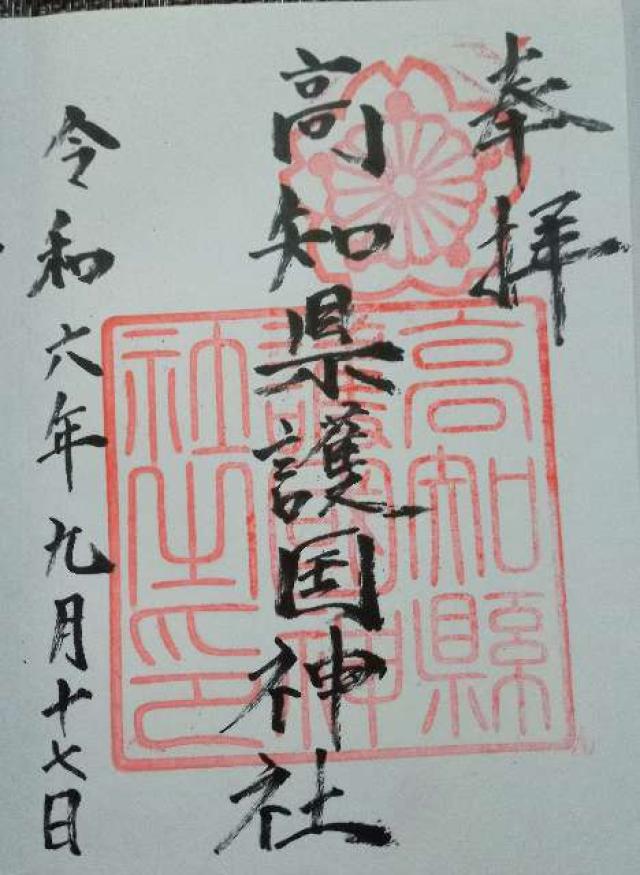 奉拝
高知県護国神社
令和六年九月十七日
高知縣
護國神
社之印